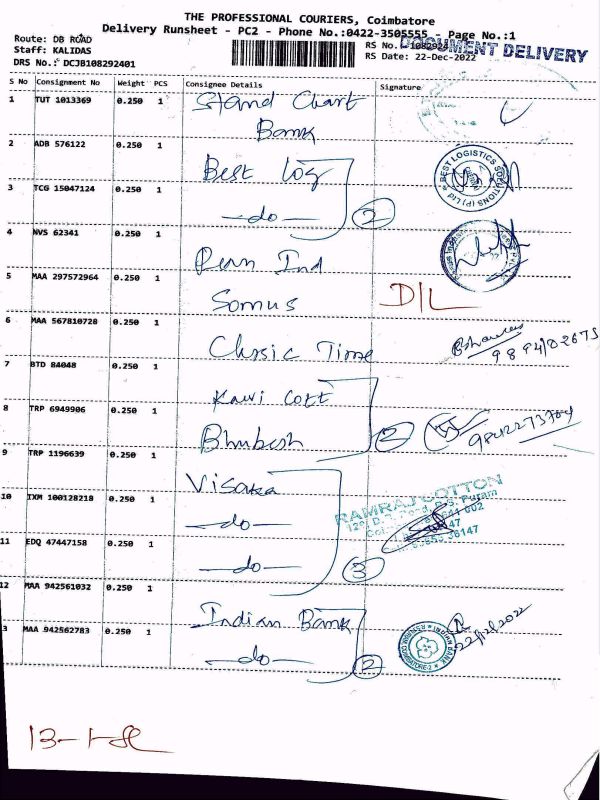 THE PROFESSIONAL COURIERS, Coimbatore
Delivery Runsheet - PC2 - Phone No.:0422-3505555 - Page No.:1
Route: DB ROAD
Staff: KALIDAS
DRS No.: DCJB108292401
RS No.: 1082924
RS Date: 22-Dec-2022
DOCUMENT DELIVERY
S No Consignment No Weight PCS Consignee Details Signature
1 TUT 1013369 0.250 1 Stand Chart Bank
2 ADB 576122 0.250 1 Best log
BEST LOGISTICS SOLUTIONS (P) Ltd
3 TCG 15047124 0.250 1 -do- 2
4 NVS 62341 0.250 1 Ind
5 MAA 297572964 0.250 1 Somus D/L
6 MAA 567810728 0.250 1 Clasic Time
7 BTD 84048 0.250 1 Kawi Cott
8 TRP 6949906 0.250 1 Bhubesh 2
9 TRP 1196639 0.250 1 Visaka
RAMRAJ COTTON
10 IXM 100128218 0.250 1 -do-
11 EDQ 47447158 0.250 1 -do- 3
12 MAA 942561032 0.250 1 Indian Bank
INDIAN BANK
3 MAA 942562783 0.250 1 -do- 2